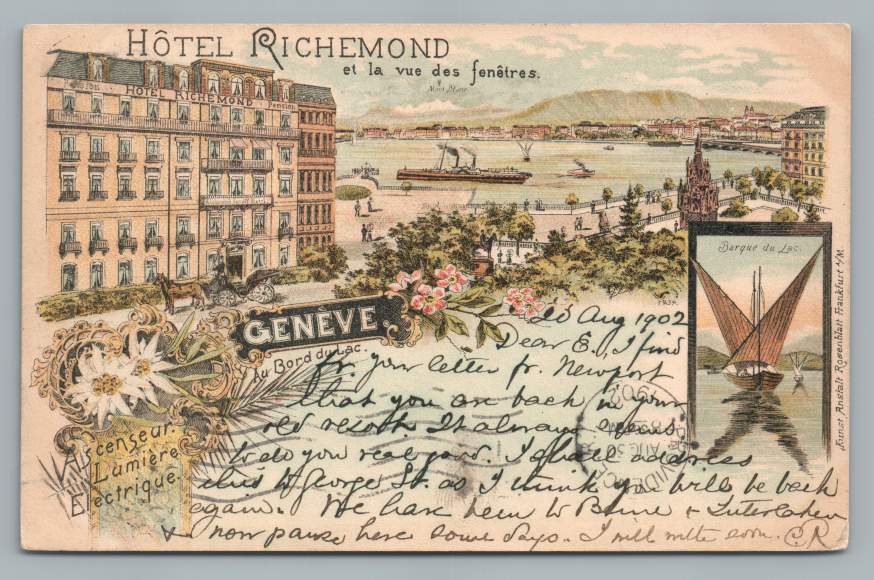 HÔTEL RICHEMOND
et la vue des fenêtres.
Mont Blanc
HOTEL RICHEMOND
Pension
Barque du Lac.
GENÈVE
Au Bord du Lac.
Ascenseur.
Lumière
Electrique.
Kunst Anstalt Rosenblatt Frankfurt a/M.
23 Aug 1902
Dear E., I find
fr. your letter fr. Newport
that you are back in your
old resort. It always
to do you real good. I shall address
this to George St. as I think you will be back
again. We have been to Berne & Interlaken
& now pause here some days. I will write soon. CR
PROVIDENCE
1902